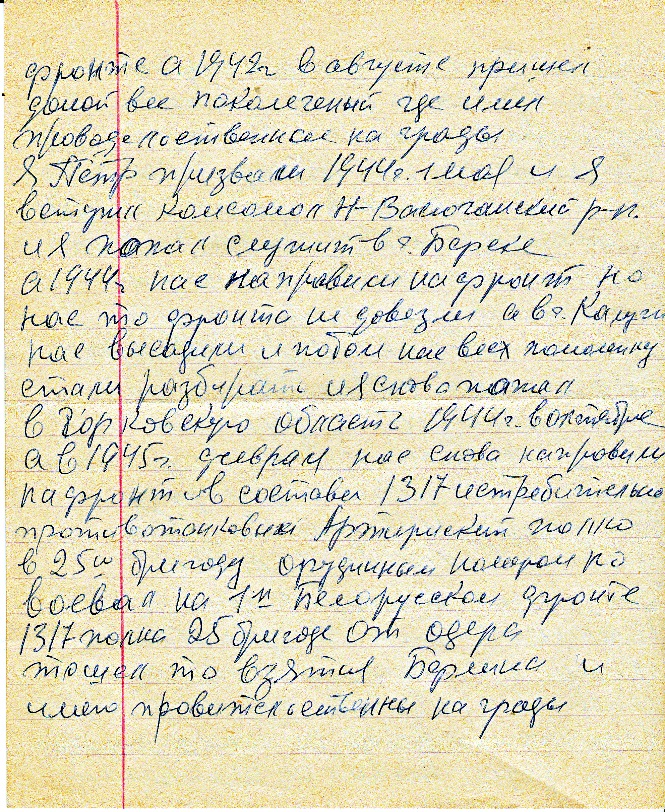 фронте а 1942г в августе пришел
домой вес покалеченый где имел
проводельственное на грады
Я Пётр призвали 1944г. 1 мая и я
вступил комсомол Н-Васюганский р-н.
и я попал служит в г. Берске
а 1944г нас направили на фронт но
нас то фронта не довезли а в г. Калуги
нас высадили и потом нас всех поодиночку
стали разбирать и я снова попал
в Горковскую область 1944г. в октябре
а в 1945г. феврал нас снова направили
на фронт и в составе 1317 истребительно
противотанковых Артериский полко
в 25ю бригаду орудиным номером по
воевал на 1м Белорусском фронте
1317 полка 25 бригаде От одера
тошел то взятия Берлина и
имею провительственны на грады